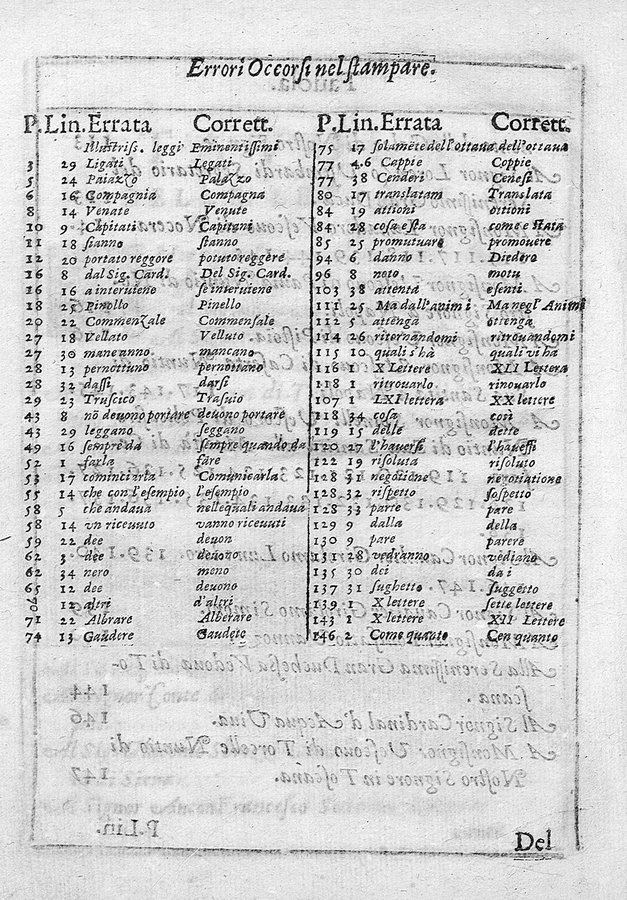 Errori Occorsi nel stampare.
P. Lin. Errata Corrett.
Illustriss. leggi Eminentissimi
3 29 Ligati Legati
5 24 Palazzo Palazzo
6 16 Compagnia Compagna
8 14 Venate Venute
10 9 Capitati Capitani
11 18 sianno stanno
12 20 portato reggore potuto reggère
16 8 dal Sig. Card. Del Sig. Card.
16 16 a interuiene se interuiene
18 25 Pinollo Pinello
20 22 Commenzale Commensale
27 18 Vellato Velluto
27 30 maneanno mancano
28 13 pernottiuno pernottano
28 32 dassi darsi
29 23 Truscico Trasuio
43 8 nõ deuono portare deuono portare
43 29 leggano seggano
49 16 sempre da sempre quando da
52 1 farla fare
53 17 cominciarla Comunicarla
55 14 che con l'esempio l'esempio
58 5 che andaua nell equali andaua
58 14 vn riceuuto vanno riceuuti
59 12 dee deuon
62 3 dee deuono
62 34 nero meno
65 12 dee deuono
70 12 altri d'altri
71 22 Albrare Alberare
74 13 Gaudere Gaudeto
P. Lin. Errata Corrett.
75 17 solamẽte dell'ottana dell'ottaua
77 4.6 Cappie Coppie
77 38 Cenderi Cenesi
80 17 translatam Translata
84 19 attioni ottioni
84 28 cosa esta come è stata
85 25 promutuare promouere
94 6 danno Diedero
96 8 noto motu
103 38 attenta esenti
111 25 Ma dall'animi Ma negl'Animi
112 5 attenga ottenga
114 26 ritornandomi ritrouandomi
115 10 quali s'hà quali vi hà
116 1 X Lettere XLI Lettera
118 1 ritrouarlo rinouarlo
107 1 LXI lettera XX lettere
118 34 cosa così
119 15 delle dette
120 27 l'hauerse l'hauessi
122 19 risoluta risoluto
128 31 negotione negotiatione
128 32 rispetto sospetto
128 33 parte pare
129 9 dalla della
130 9 pare parere
131 28 vedranno vediano
135 30 dei da i
137 31 sughetto suggetto
139 1 X lettere sette lettere
143 1 X lettere XII Lettere
146 2 Come quanto Con quanto
Del